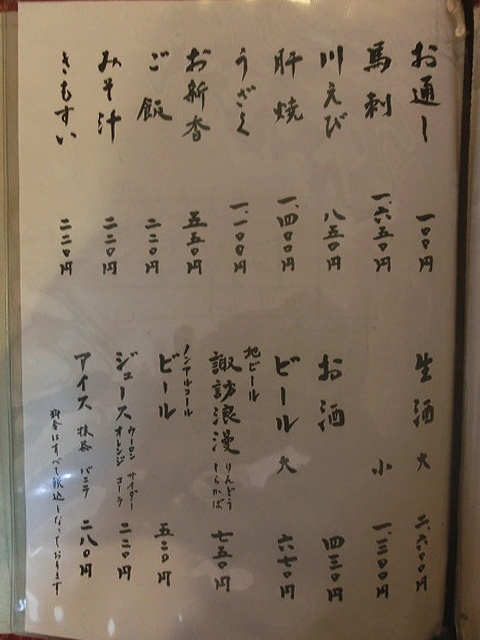 お通し 一〇〇円
馬刺 一、六五〇円
川えび 八五〇円
肝焼 一、四〇〇円
うざく 一、一〇〇円
お新香 五五〇円
ご飯 二二〇円
みそ汁 二二〇円
きもすい 二二〇円
生酒 大 二、六〇〇円
小 一、三〇〇円
お酒 四三〇円
ビール 大 六七〇円
地ビール
諏訪浪漫 りんどう しらかば 七五〇円
ノンアルコール
ビール 五三〇円
ジュース ウーロン サイダー オレンジ コーラ 二二〇円
アイス 抹茶 バニラ 二八〇円
料金はすべて税込となっております